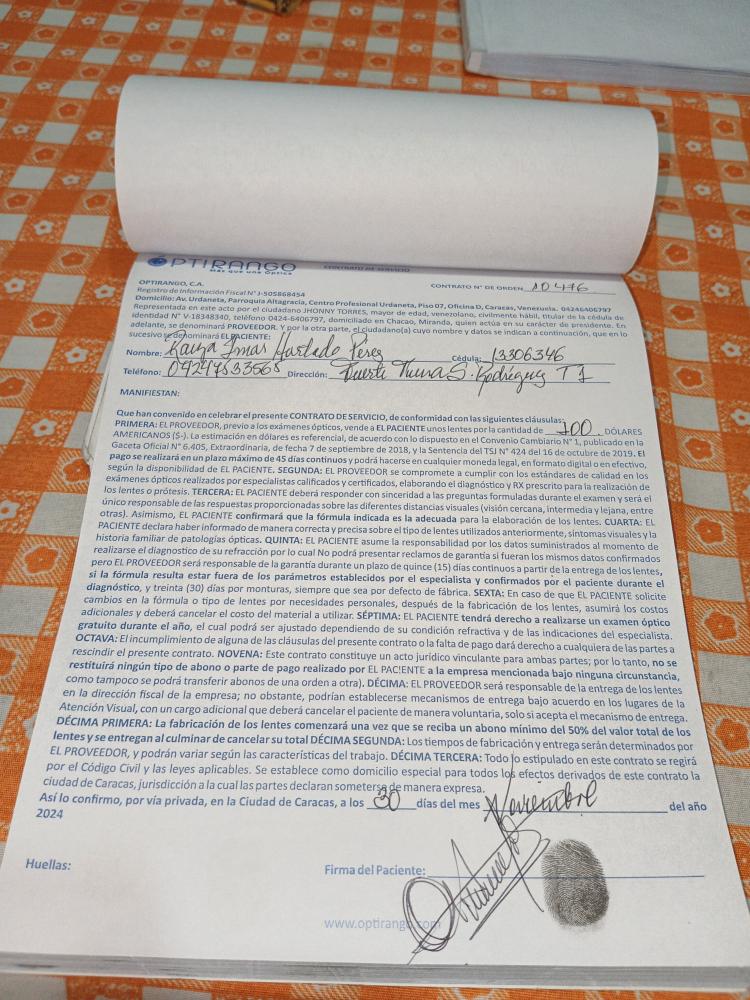 OPTIRANGO
Más que una Óptica
CONTRATO DE SERVICIO
OPTIRANGO, C.A.
CONTRATO N° DE ORDEN 10476
Registro de Información Fiscal N° J-505868454
Domicilio: Av. Urdaneta, Parroquia Altagracia, Centro Profesional Urdaneta, Piso 07, Oficina D, Caracas, Venezuela. 04246406797
Representada en este acto por el ciudadano JHONNY TORRES, mayor de edad, venezolano, civilmente hábil, titular de la cédula de
identidad N° V-18348340, teléfono 0424-6406797, domiciliado en Chacao, Miranda, quien actúa en su carácter de presidente. En
adelante, se denominará PROVEEDOR. Y por la otra parte, el ciudadano(a) cuyo nombre y datos se indican a continuación, que en lo
sucesivo se denominará EL PACIENTE:
Nombre: Hurtado Perez Cédula: 13306346
Teléfono: 04247533568 Dirección: Fuerte Tiuna S. Rodríguez T 1
MANIFIESTAN:
Que han convenido en celebrar el presente CONTRATO DE SERVICIO, de conformidad con las siguientes cláusulas:
PRIMERA: EL PROVEEDOR, previo a los exámenes ópticos, vende a EL PACIENTE unos lentes por la cantidad de 100 DÓLARES
AMERICANOS ($-). La estimación en dólares es referencial, de acuerdo con lo dispuesto en el Convenio Cambiario N° 1, publicado en la
Gaceta Oficial N° 6.405, Extraordinaria, de fecha 7 de septiembre de 2018, y la Sentencia del TSJ N° 424 del 16 de octubre de 2019. El
pago se realizará en un plazo máximo de 45 días continuos y podrá hacerse en cualquier moneda legal, en formato digital o en efectivo,
según la disponibilidad de EL PACIENTE. SEGUNDA: EL PROVEEDOR se compromete a cumplir con los estándares de calidad en los
exámenes ópticos realizados por especialistas calificados y certificados, elaborando el diagnóstico y RX prescrito para la realización de
los lentes o prótesis. TERCERA: EL PACIENTE deberá responder con sinceridad a las preguntas formuladas durante el examen y será el
único responsable de las respuestas proporcionadas sobre las diferentes distancias visuales (visión cercana, intermedia y lejana, entre
otras). Asimismo, EL PACIENTE confirmará que la fórmula indicada es la adecuada para la elaboración de los lentes. CUARTA: EL
PACIENTE declara haber informado de manera correcta y precisa sobre el tipo de lentes utilizados anteriormente, síntomas visuales y la
historia familiar de patologías ópticas. QUINTA: EL PACIENTE asume la responsabilidad por los datos suministrados al momento de
realizarse el diagnostico de su refracción por lo cual No podrá presentar reclamos de garantía si fueran los mismos datos confirmados
pero EL PROVEEDOR será responsable de la garantía durante un plazo de quince (15) días continuos a partir de la entrega de los lentes,
si la fórmula resulta estar fuera de los parámetros establecidos por el especialista y confirmados por el paciente durante el
diagnóstico, y treinta (30) días por monturas, siempre que sea por defecto de fábrica. SEXTA: En caso de que EL PACIENTE solicite
cambios en la fórmula o tipo de lentes por necesidades personales, después de la fabricación de los lentes, asumirá los costos
adicionales y deberá cancelar el costo del material a utilizar. SÉPTIMA: EL PACIENTE tendrá derecho a realizarse un examen óptico
gratuito durante el año, el cual podrá ser ajustado dependiendo de su condición refractiva y de las indicaciones del especialista.
OCTAVA: El incumplimiento de alguna de las cláusulas del presente contrato o la falta de pago dará derecho a cualquiera de las partes a
rescindir el presente contrato. NOVENA: Este contrato constituye un acto jurídico vinculante para ambas partes; por lo tanto, no se
restituirá ningún tipo de abono o parte de pago realizado por EL PACIENTE a la empresa mencionada bajo ninguna circunstancia,
como tampoco se podrá transferir abonos de una orden a otra). DÉCIMA: EL PROVEEDOR será responsable de la entrega de los lentes
en la dirección fiscal de la empresa; no obstante, podrían establecerse mecanismos de entrega bajo acuerdo en los lugares de la
Atención Visual, con un cargo adicional que deberá cancelar el paciente de manera voluntaria, solo si acepta el mecanismo de entrega.
DÉCIMA PRIMERA: La fabricación de los lentes comenzará una vez que se reciba un abono mínimo del 50% del valor total de los
lentes y se entregan al culminar de cancelar su total DÉCIMA SEGUNDA: Los tiempos de fabricación y entrega serán determinados por
EL PROVEEDOR, y podrán variar según las características del trabajo. DÉCIMA TERCERA: Todo lo estipulado en este contrato se regirá
por el Código Civil y las leyes aplicables. Se establece como domicilio especial para todos los efectos derivados de este contrato la
ciudad de Caracas, jurisdicción a la cual las partes declaran someterse de manera expresa.
Así lo confirmo, por vía privada, en la Ciudad de Caracas, a los 30 días del mes Noviembre del año
2024
Huellas:
Firma del Paciente:
www.optirango.com